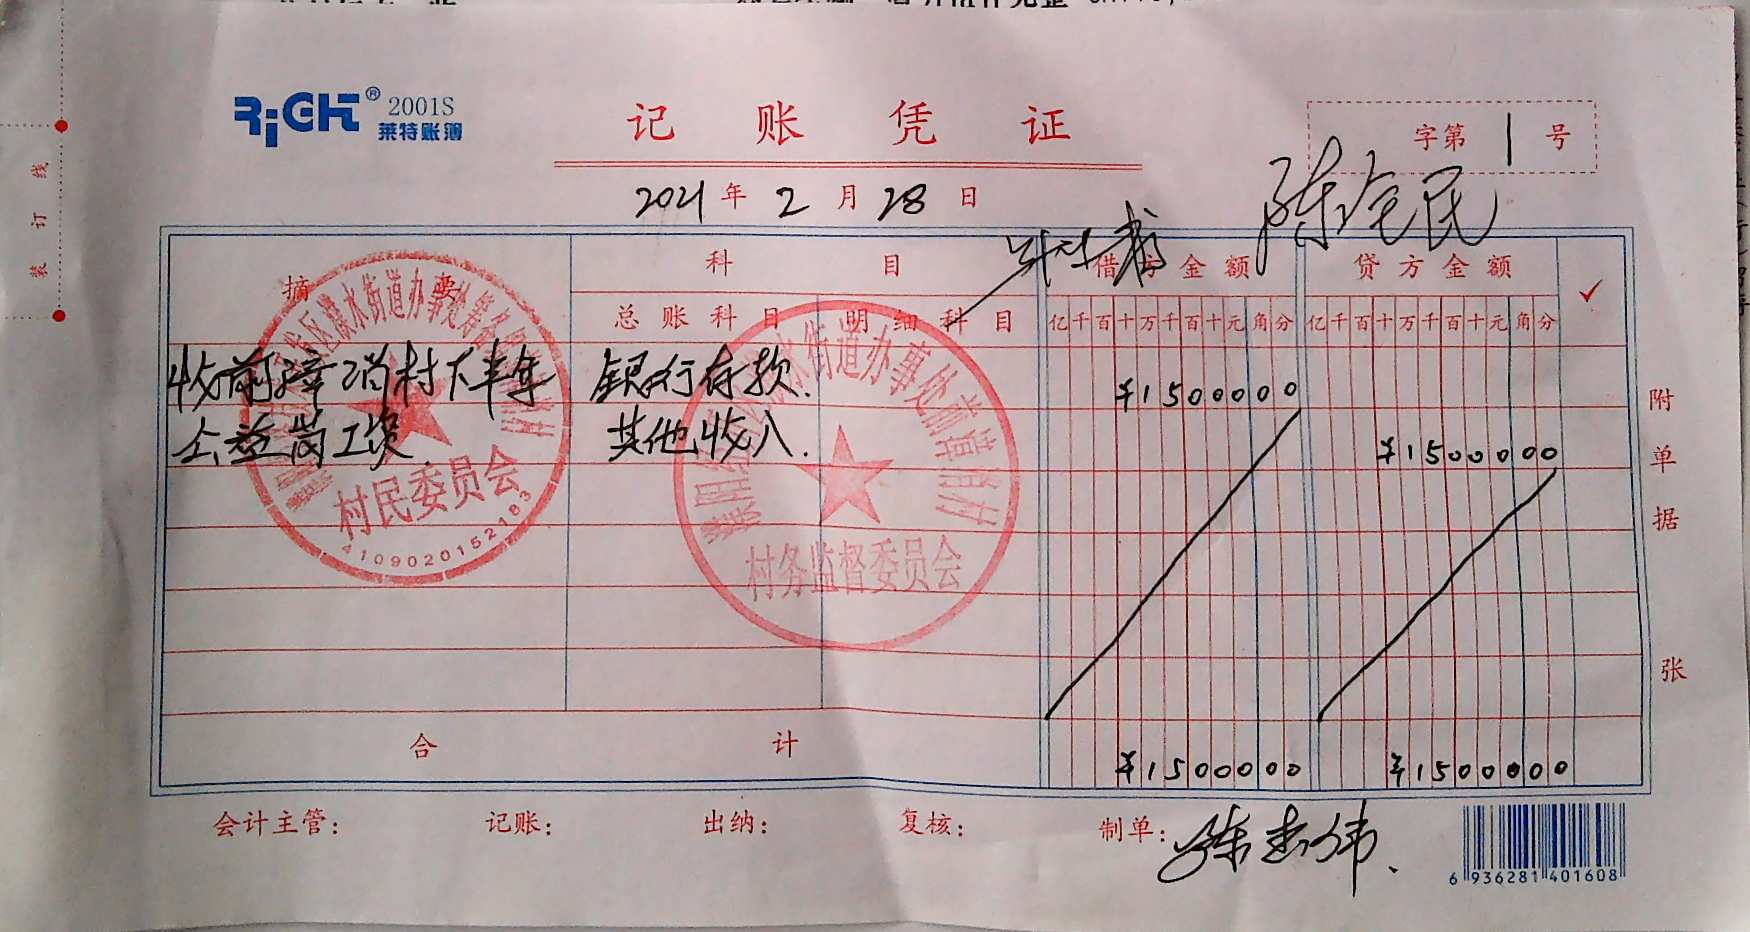 RiGHT® 2001S
莱特账簿
记账凭证
字第 1 号
2021 年 2 月 28 日
陈宝民
摘要
科目
借方金额
贷方金额
✓
总账科目
明细科目
亿千百十万千百十元角分
亿千百十万千百十元角分
收前漳消村下半年
银行存款.
¥1500000
公益岗工资.
其他收入.
¥1500000
村民委员会
4109020152183
街道办事处前漳消村
村务监督委员会
合计
¥1500000
¥1500000
附单据
张
会计主管:
记账:
出纳:
复核:
制单:
陈志伟.
6 936281 401608
装订线